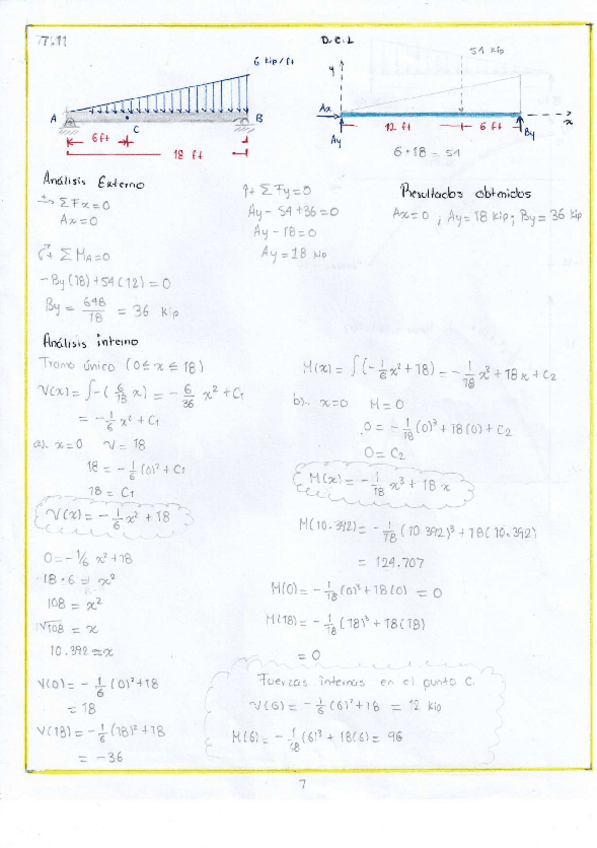 7.11
6 kip/ft
A
B
C
6 ft
18 ft
D.C.L
51 kip
y
x
Ax
Ay
By
12 ft
6 ft
6*18 = 51
Análisis Externo
→+ ΣFx=0
Ax=0
+ ΣMA=0
-By(18)+54(12)=0
By = 648/18 = 36 kip
↑+ ΣFy=0
Ay-54+36=0
Ay-18=0
Ay=18 kip
Resultados obtenidos
Ax=0 ; Ay=18 kip; By=36 kip
Análisis interno
Tramo único (0≤x≤18)
V(x)=∫-(6/18 x) = -6/36 x²+C1
= -1/6 x²+C1
a). x=0 V=18
18 = -1/6(0)²+C1
18 = C1
V(x)= -1/6 x²+18
0=-1/6 x²+18
18*6 = x²
108 = x²
√108 = x
10.392=x
V(0)= -1/6(0)²+18
= 18
V(18)= -1/6(18)²+18
= -36
M(x)=∫(-1/6x²+18) = -1/18x³+18x+C2
b). x=0 M=0
0=-1/18(0)³+18(0)+C2
0=C2
M(x)= -1/18 x³+18x
M(10.392)= -1/18(10.392)³+18(10.392)
= 124.707
M(0)= -1/18(0)³+18(0) = 0
M(18)= -1/18(18)³+18(18)
= 0
Fuerzas internas en el punto C.
V(6)= -1/6(6)²+18 = 12 kip
M(6)= -1/18(6)³+18(6)= 96
7